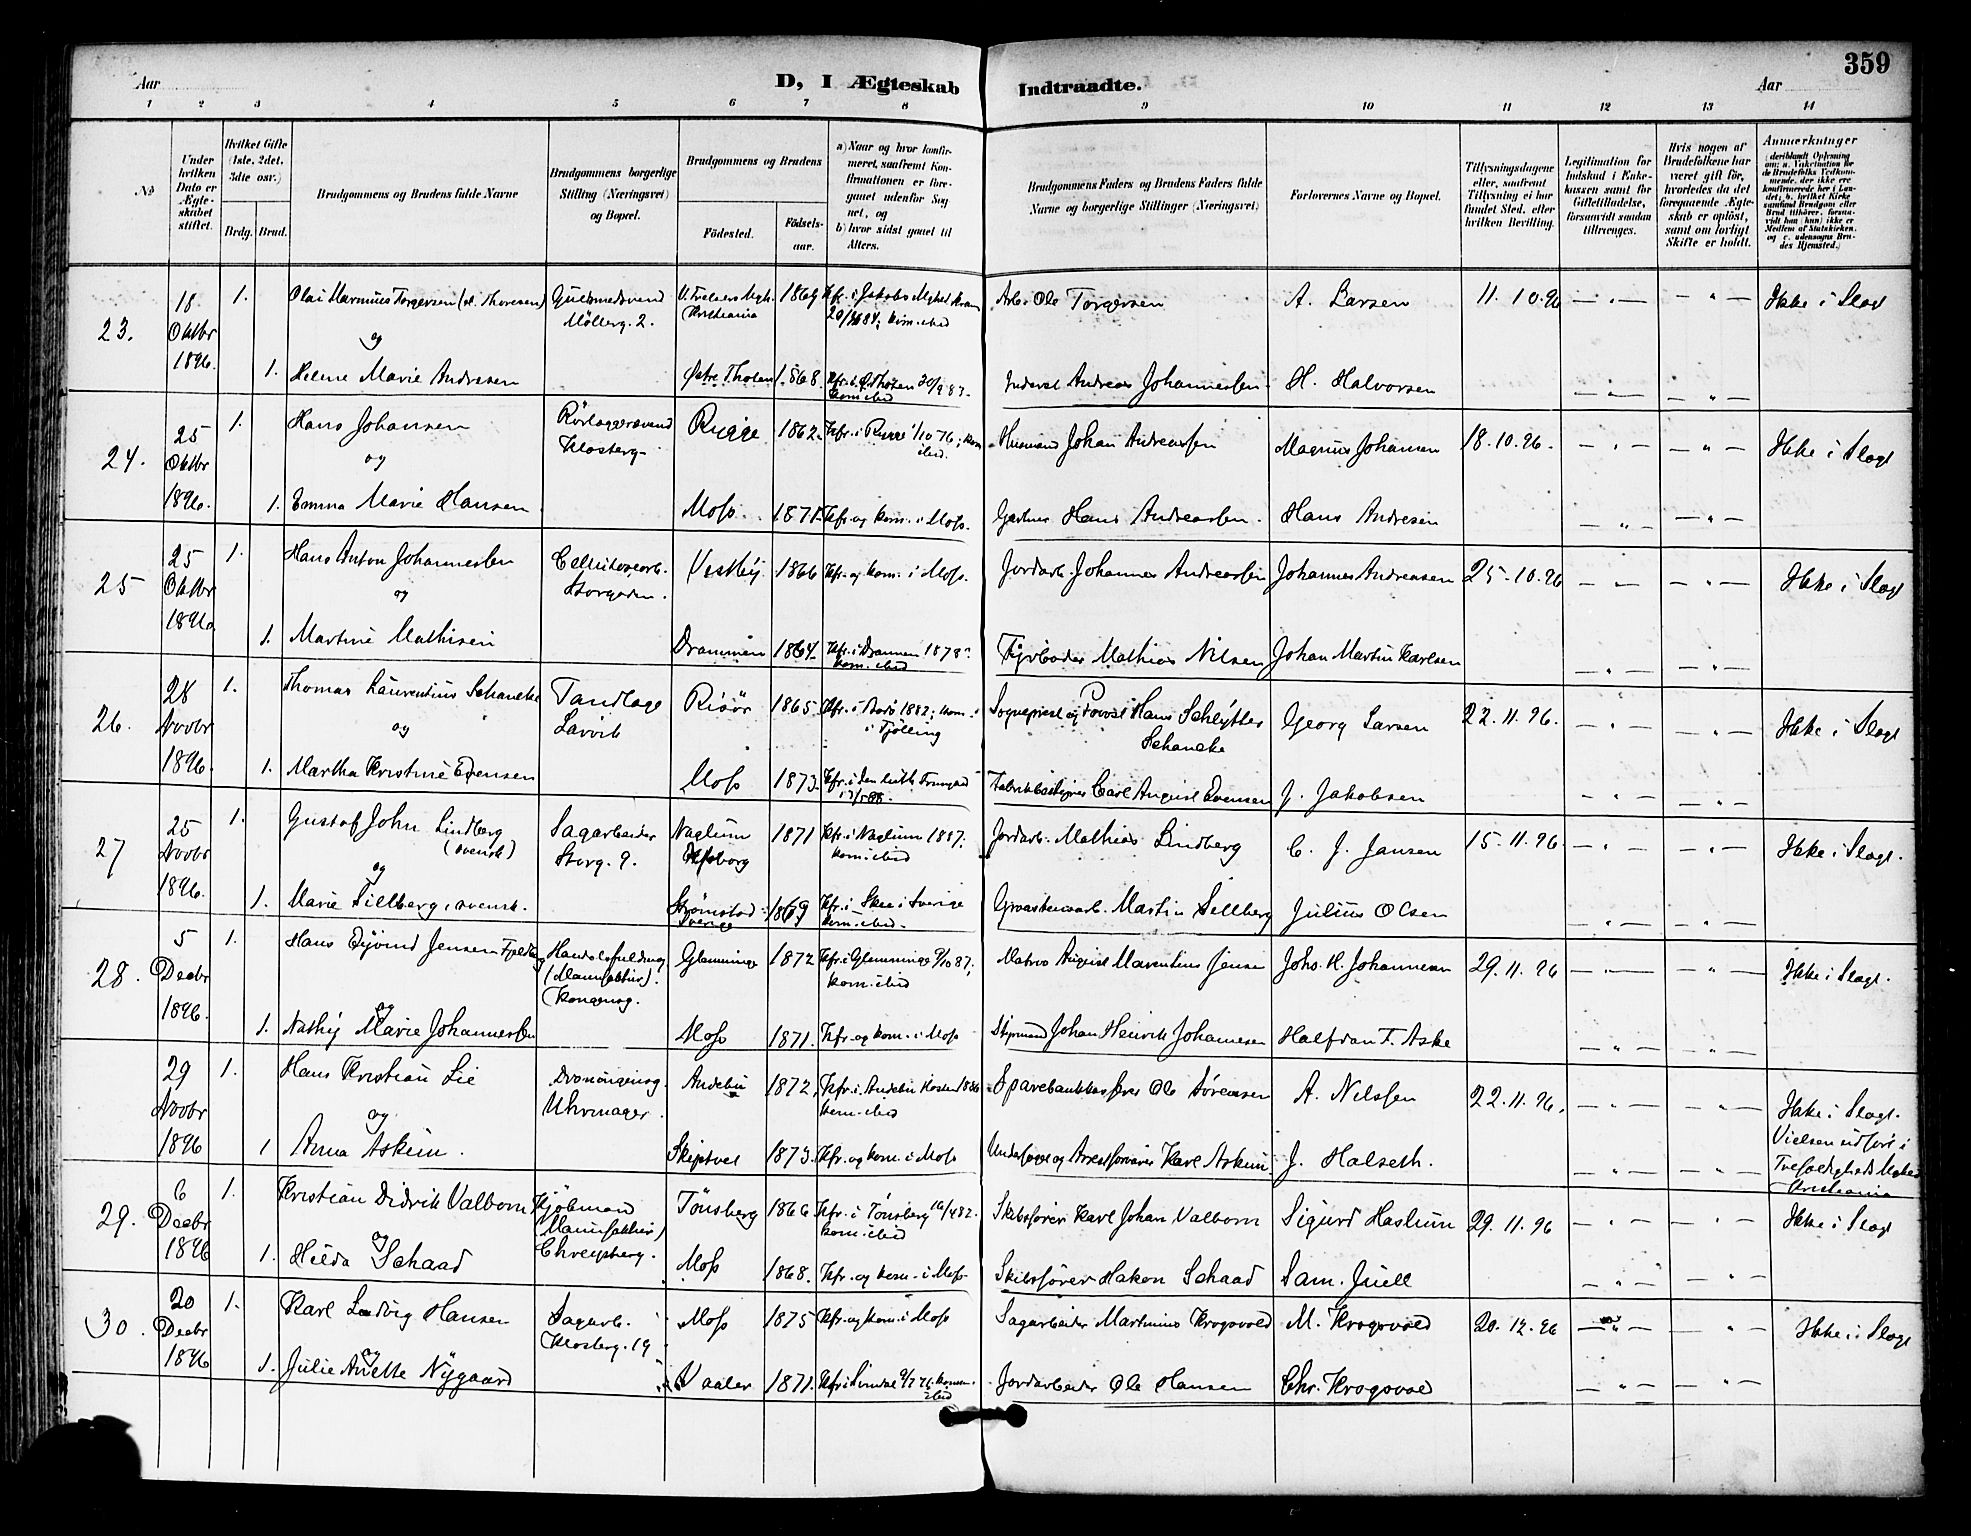 359
Aar
D, I Ægteskab Indtraadte.
Aar
1 2 3 4 5 6 7 8 9 10 11 12 13 14
No
Under hvilken Dato er Ægteskabet stiftet.
Hvilket Gifte (1ste, 2det, 3die osv.)
Brdg. Brud.
Brudgommens og Brudens fulde Navne
Brudgommens borgerlige Stilling (Næringsvei) og Bopæl.
Brudgommens og Brudens
Fødested.
Fødselsaar.
a) Naar og hvor konfirmeret, saafremt Konfirmationen er foregaaet udenfor Sognet, og
b) hvor sidst gaaet til Alters.
Brudgommens Faders og Brudens Faders fulde Navne og borgerlige Stillinger (Næringsvei)
Forlovernes Navne og Bopæl.
Tillysningsdagene eller, saafremt Tillysning ei har fundet Sted, efter hvilken Bevilling.
Legitimation for Indskud i Enkekassen samt for Giftetilladelse, forsaavidt saadan tiltrænges.
Hvis nogen af Brudefolkene har været gift før, hvorledes da det foregaaende Ægteskab er opløst, samt om lovligt Skifte er holdt.
Anmerkninger
23. 18 Oktbr 1896. 1. Olai Marinius Torgersen (el. Thoresen) Guldsmedsvend Mølleg. 2. V. Frelsers Mgh. Kristiania 1869 Kfr. i Jakobs Mghed Kom. ibid Arb. Ole Torgersen A. Larsen 11. 10. 96 — " — — " — Ikke i Slægt
og
1. Helene Marie Andresen Østre Thoten 1868. Kfr. i Ø. Thoten 30/9 83. kom. ibid Inderst Andreas Johannessen H. Halvorsen — " — — " —
24. 25 Oktbr 1896. 1. Hans Johansen Rørlæggersvend Klosterg. Rygge 1862. Kfr. i Rygge 1/10 76; kom ibid. Husmand Johan Andreassen Magnus Johansen 18. 10. 96. — " — — " — Ikke i Slægt
og
1. Emma Marie Hansen Moss. 1871. Kfr. og kom. i Moss. Gartner Hans Andreassen. Hans Andresen — " — — " —
25 25 Oktbr 1896. 1. Hans Anton Johannessen Cellulosearb. Storgaden. Vestby 1866 Kfr. og kom. i Moss. Jordarb. Johannes Andreassen Johannes Andreasen 25. 10. 96 — " — — " — Ikke i Slægt
og
1. Martine Mathisen Drammen 1864. Kfr. i Drammen 1878. kom. ibid Fyrbøder Mathias Nilsen Johan Martin Karlsen — " — — " —
26. 28 Novbr 1896. 1. Thomas Laurentius Schancke Tandlæge Larvik Risør 1865. Kfr. i 1882; kom. i Tjølling Sogneprest og Provst Hans Schlytter Schancke Georg Larsen 22. 11. 96. — " — — " — Ikke i Slægt
og
1. Martha Kristine Evensen Moss 1873. Kfr. i den luth. Frimghed Fabrikbestyrer Carl August Evensen J. Jakobsen — " — — " —
27 25 Novbr 1896. 1. Gustaf John Lindberg (svensk) Sagarbeider Storg. 9. Naglum Elfsborg 1871 Kfr. i Naglum 1887; kom. ibid Jordarb. Mathias Lindberg C. J. Jansen 15. 11. 96. — " — — " — Ikke i Slægt.
og
1. Marie Sillberg, svensk. Strømstad Sverige 1869 Kfr. i Skee i Sverige kom. ibid. Graastensarb. Martin Sillberg Julius Olsen — " — — " —
28. 5 Decbr 1896. 1. Hans Eyvind Jensen Fjeldberg Handelsfuldmæg (Manufaktur). Kongensg. Glemminge 1872 Kfr. i Glemminge 9/10 87; kom. ibid Matros August Marentius Jensen Johs. H. Johannesen 29. 11. 96 — " — — " — Ikke i Slægt.
og
1. Nathy Marie Johannessen Moss 1871. Kfr. og kom. i Moss Styrmand Johan Henrik Johannesen Halfdan F. Aske — " — — " —
29 Novbr 1896 1. Hans Kristian Lie Dronningensg Uhrmager. Andebu 1872. Kfr. i Andebu kom. ibid Sparebankkasserer Ole Sørensen A. Nilssen 22. 11. 96. — " — — " — Ikke i Slægt. Vielsen udført i Trefoldigheds Mghed Kristiania
og
1 Anna Askim. Skiptvet 1873. Kfr. og kom. i Moss Underfoged og Arrestforvarer Karl Askim J. Halseth. — " — — " —
29. 6 Decbr 1896 1. Kristian Didrik Valborn Kjøbmand (Manufaktur) Chrystberg. Tønsberg 1866. Kfr. i Tønsberg 16/4 82. kom. ibid Skibsfører Karl Johan Valborn Sigurd Haslum 29. 11. 96 — " — — " — Ikke i Slægt
og
1. Hilda Schaad Moss 1868. Kfr. og kom. i Moss. Skibsfører Hakon Schaad Sam. Juell — " — — " —
30. 20 Decbr 1896 1. Karl Ludvig Hansen Sagarb. Klosterg. 19 Moss 1875 Kfr. og kom. i Moss Sagarbeider Martinius Krogsvold M. Krogsvold 20. 12. 96 — " — — " — Ikke i Slægt
og
1. Julie Anette Nygaard Vaaler 1871. Kfr. i Svindal kom. ibid Jordarbeider Ole Hansen Chr. Krogsvold — " — — " —